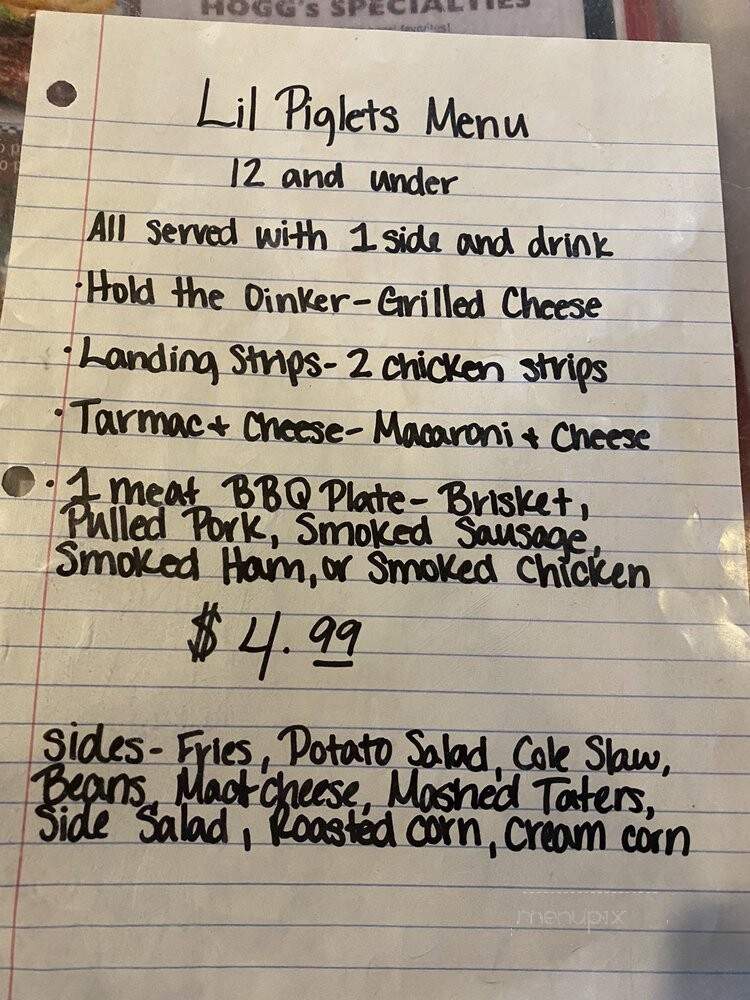 HOGG's SPECIALTIES
Lil Piglets Menu
12 and under
All served with 1 side and drink
·Hold the Oinker-Grilled Cheese
·Landing Strips-2 chicken strips
·Tarmac+ Cheese-Macaroni + Cheese
·1 meat BBQ Plate-Brisket,
Pulled Pork, Smoked Sausage,
Smoked Ham, or Smoked Chicken
$4.99
Sides-Fries, Potato Salad, Cole Slaw,
Beans, Mac+cheese, Mashed Taters,
Side Salad, Roasted corn, Cream corn
menupix